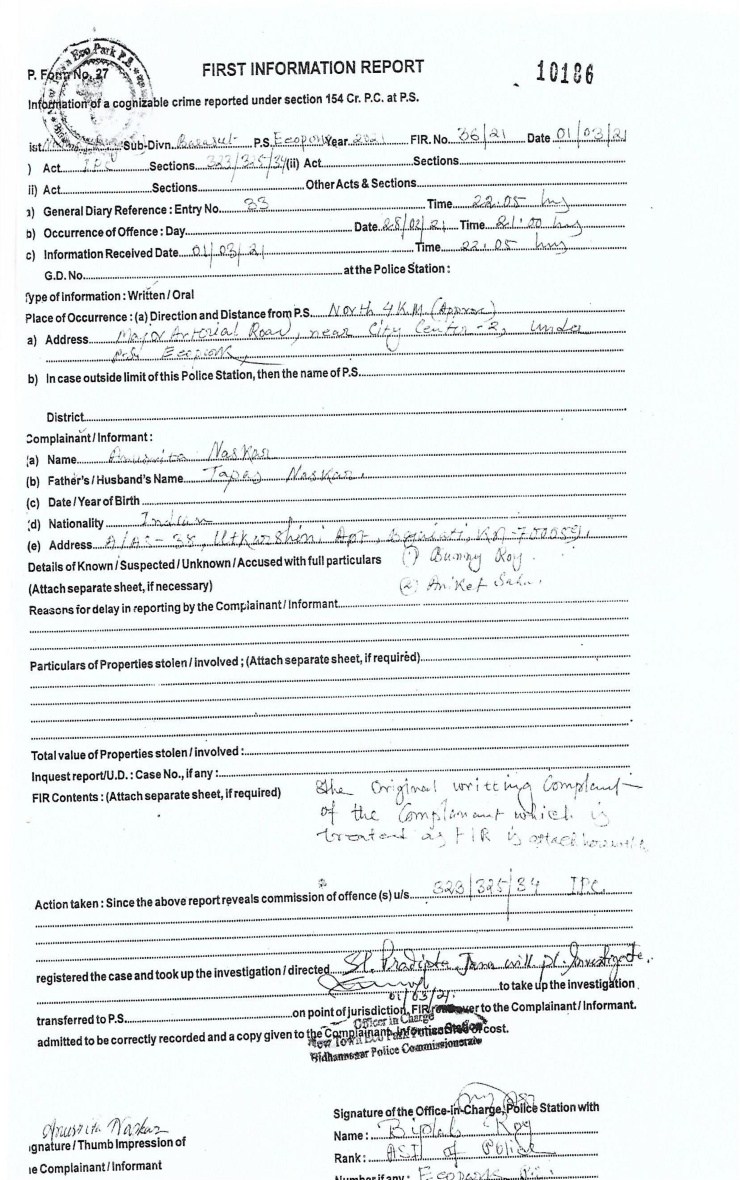 New Town Eco Park P.S.
P. Form No. 27
FIRST INFORMATION REPORT
10186
Information of a cognizable crime reported under section 154 Cr. P.C. at P.S.
ist Sub-Divn. Barasat P.S. Ecopark Year 2021 FIR. No. 36/21 Date 01/03/21
) Act IPC Sections 323/325/34 (ii) Act Sections
ii) Act Sections Other Acts & Sections
a) General Diary Reference : Entry No. 33 Time 22.05 hrs
b) Occurrence of Offence : Day Date 28/02/21 Time 21:00 hrs
c) Information Received Date 01/03/21 Time 22.05 hrs
G.D. No. at the Police Station :
Type of information : Written / Oral
Place of Occurrence : (a) Direction and Distance from P.S. North 4 K.M (Approx)
a) Address Major Arterial Road, near City Center-2, under
P.S. Ecopark
b) In case outside limit of this Police Station, then the name of P.S.
District
Complainant / Informant :
(a) Name Anusmita Naskar
(b) Father's / Husband's Name Tapas Naskar
(c) Date / Year of Birth
(d) Nationality Indian
(e) Address A/AS-38, Utkarshini Apt, Kol-700059
Details of Known / Suspected / Unknown / Accused with full particulars (1) Bunny Roy
(Attach separate sheet, if necessary) (2) Aniket Saha
Reasons for delay in reporting by the Complainant / Informant
Particulars of Properties stolen / involved ; (Attach separate sheet, if required)
Total value of Properties stolen / involved :
Inquest report/U.D. : Case No., if any :
FIR Contents : (Attach separate sheet, if required) The Original writting Complaint
of the Complainant which is
treated as FIR is attach herewith
Action taken : Since the above report reveals commission of offence (s) u/s 323/325/34 I.P.C.
registered the case and took up the investigation / directed SI. Pradipta Jana will pl. Investigate.
to take up the investigation
01/03/21.
transferred to P.S. on point of jurisdiction, FIR over to the Complainant / Informant.
Officer in Charge
admitted to be correctly recorded and a copy given to the Complainant Informant of cost.
New Town Eco Park Police Station
Bidhannagar Police Commissionerate
Signature of the Office-in-Charge, Police Station with
Anusmita Naskar
Name : Biplab Roy
ignature / Thumb Impression of
Rank : ASI of Police
e Complainant / Informant
Number if any : Ecopark P.S.